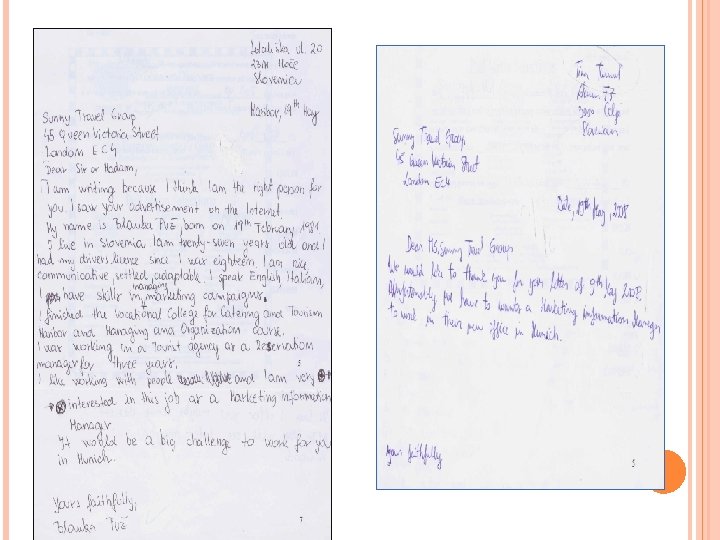 23
Slovenia
Maribor, 19th May
Sunny Travel Group
45 Queen Victoria Street
London EC4
Dear Sir or Madam,
I am writing because I think I am the right person for
you. I saw your advertisement on the Internet.
My name is Blanka Puž, born on 19th February 1981
I live in Slovenia I am twenty-seven years old and I
had my drivers licence since I was eighteen. I am nice
communicative, settled, adaptable. I speak English, Italian,
I have skills in managing marketing campaigns.
I finished the Vocational College for Catering and Tourism
Maribor and Managing and Organization course.
I was working in a Tourist agency as a Reservation
manager for three years.
5
I like working with people and I am very
interested in this job as a marketing information
Manager
It would be a big challenge to work for you
in Munich.
Yours faithfully,
Blanka Puž
7
Sunny Travel Group
45 Queen Victoria Street
London EC4
Date, 19th May, 2008
Dear Ms, Sunny Travel Group
We would like to thank you for your letter of 9th May 2008.
Unfortunately have to a Marketing information Manager
to work in their new office in Munich.
Yours faithfully
5